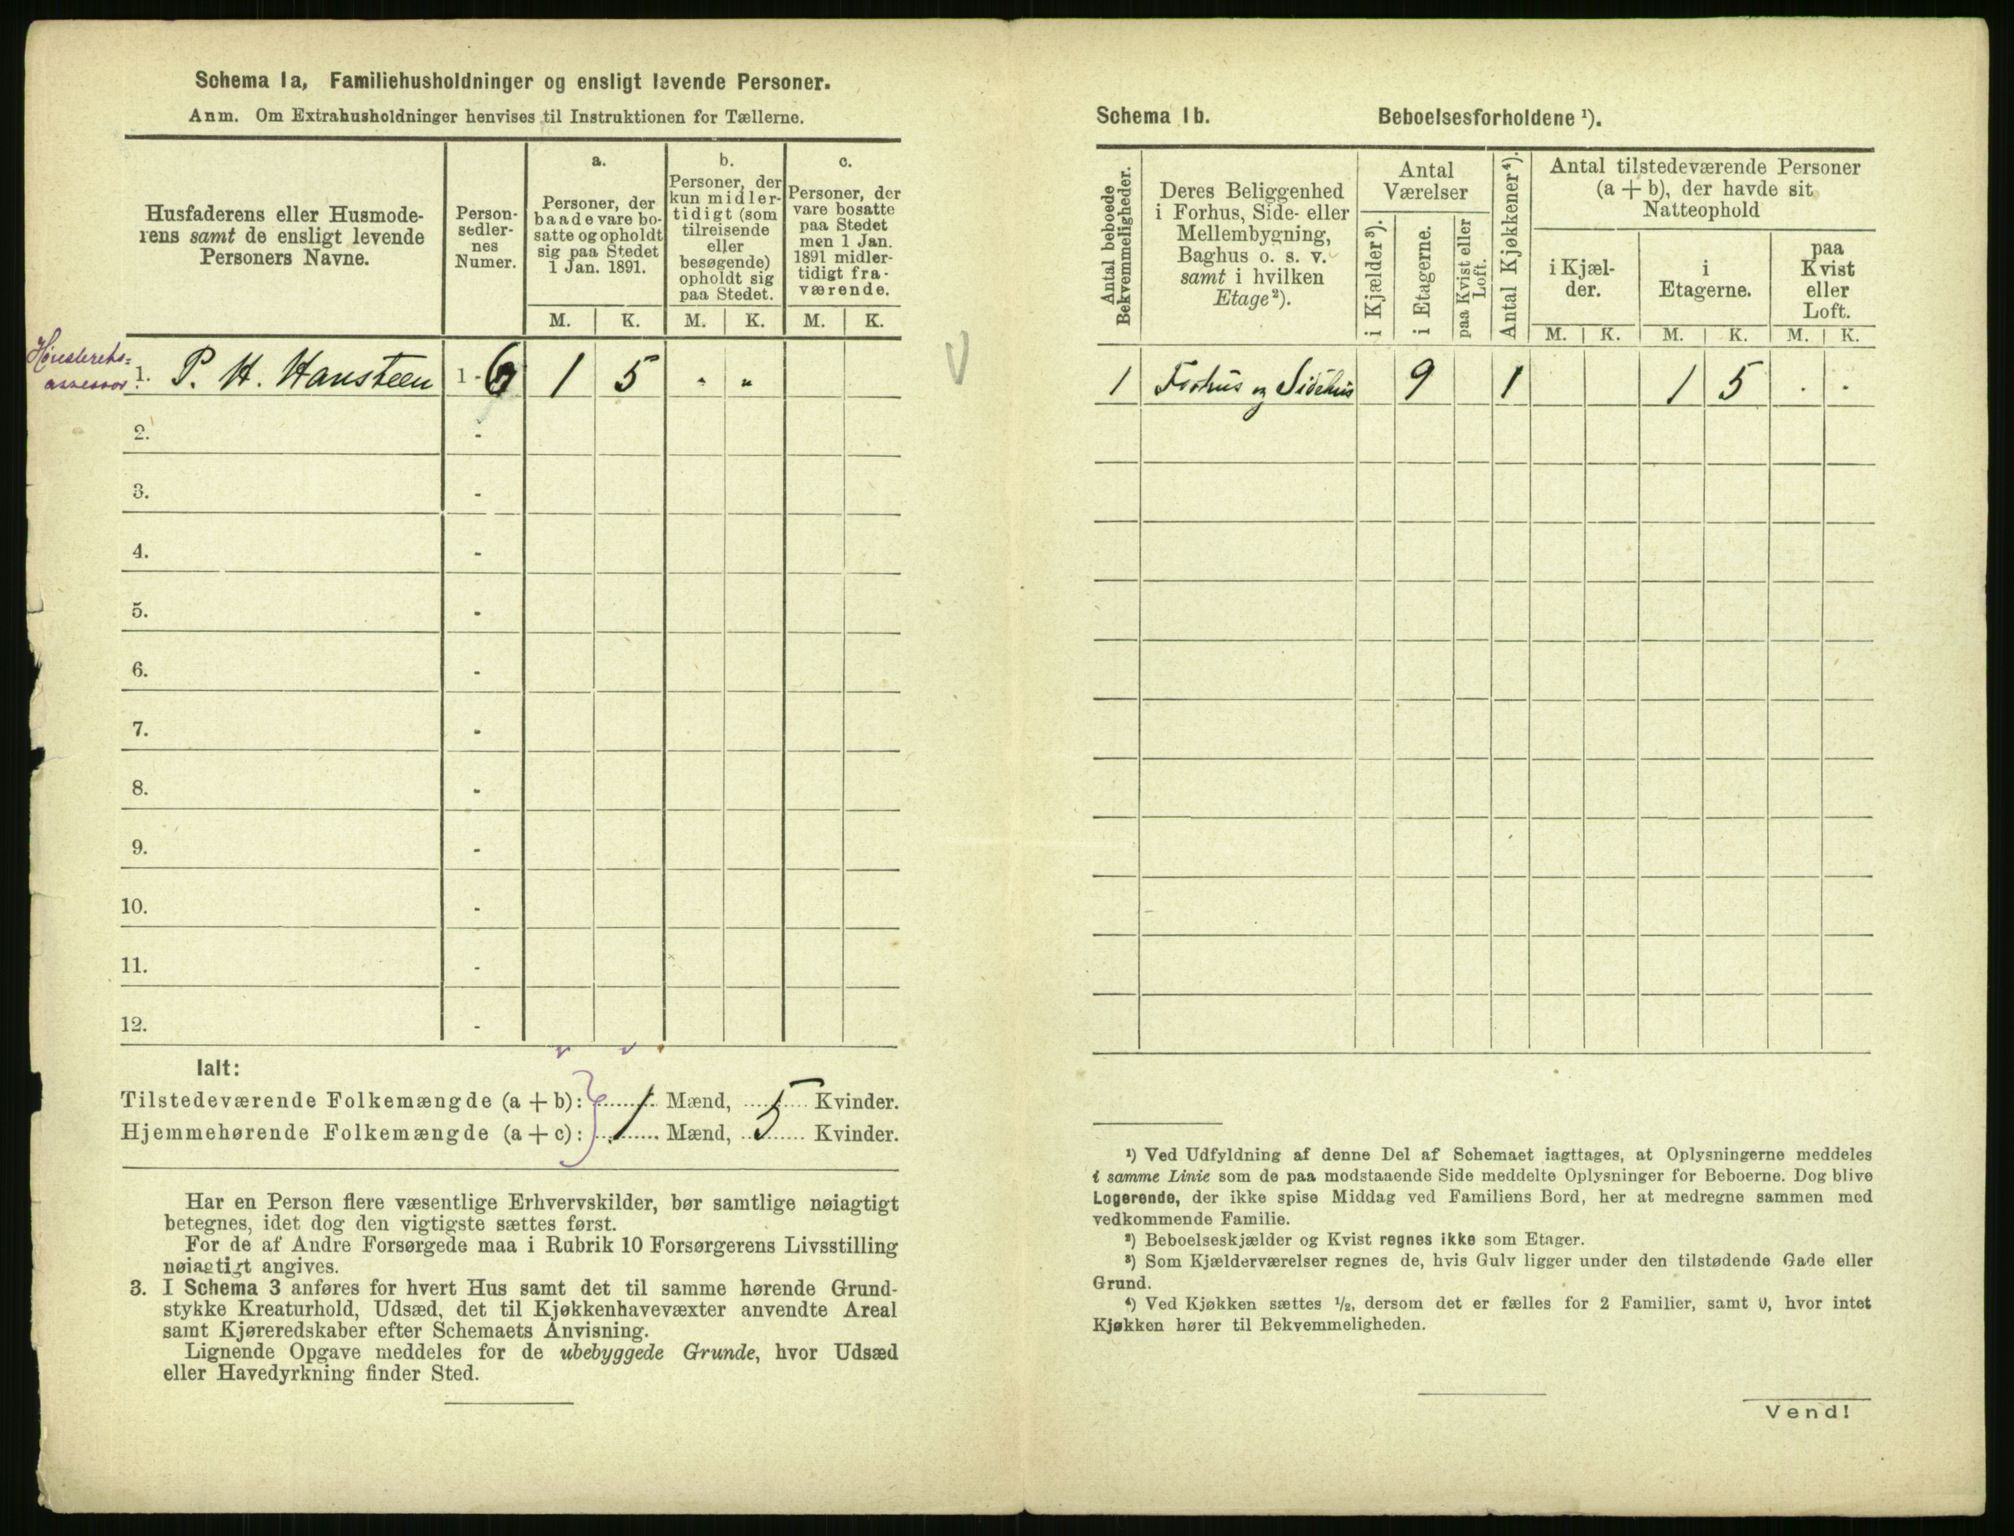 Schema 1a, Familiehusholdninger og ensligt levende Personer.
Anm. Om Extrahusholdninger henvises til Instruktionen for Tællerne.
Husfaderens eller Husmode-
rens samt de ensligt levende
Personers Navne.
Person-
sedler-
nes
Numer.
a.
Personer, der
baade vare bo-
satte og opholdt
sig paa Stedet
1 Jan. 1891.
M. K.
b.
Personer, der
kun midler-
tidigt (som
tilreisende
eller
besøgende)
opholdt sig
paa Stedet.
M. K.
c.
Personer, der
vare bosatte
paa Stedet
men 1 Jan.
1891 midler-
tidigt fra-
værende.
M. K.
assessor
1. P. H. Hansteen 1 - 6 1 5 „ „
2. -
3. -
4. -
5. -
6. -
7. -
8. -
9. -
10. -
11. -
12. -
Ialt:
Tilstedeværende Folkemængde (a + b): 1 Mænd, 5 Kvinder.
Hjemmehørende Folkemængde (a + c): Mænd, Kvinder.
Har en Person flere væsentlige Erhvervskilder, bør samtlige nøiagtigt
betegnes, idet dog den vigtigste sættes først.
For de af Andre Forsørgede maa i Rubrik 10 Forsørgerens Livsstilling
nøiagtigt angives.
3. I Schema 3 anføres for hvert Hus samt det til samme hørende Grund-
stykke Kreaturhold, Udsæd, det til Kjøkkenhavevæxter anvendte Areal
samt Kjøreredskaber efter Schemaets Anvisning.
Lignende Opgave meddeles for de ubebyggede Grunde, hvor Udsæd
eller Havedyrkning finder Sted.
Schema 1b. Beboelsesforholdene ¹).
Antal beboede
Bekvemmeligheder.
Deres Beliggenhed
i Forhus, Side- eller
Mellembygning,
Baghus o. s. v.
samt i hvilken
Etage²).
Antal
Værelser
i Kjælder³).
i Etagerne.
paa Kvist eller
Loft.
Antal Kjøkkener⁴).
Antal tilstedeværende Personer
(a + b), der havde sit
Natteophold
i Kjæl-
der.
M. K.
i
Etagerne.
M. K.
paa
Kvist
eller
Loft.
M. K.
1 Forhus og Sidehus 9 1 1 5 . .
¹) Ved Udfyldning af denne Del af Schemaet iagttages, at Oplysningerne meddeles
i samme Linie som de paa modstaaende Side meddelte Oplysninger for Beboerne. Dog blive
Logerende, der ikke spise Middag ved Familiens Bord, her at medregne sammen med
vedkommende Familie.
²) Beboelseskjælder og Kvist regnes ikke som Etager.
³) Som Kjælderværelser regnes de, hvis Gulv ligger under den tilstødende Gade eller
Grund.
⁴) Ved Kjøkken sættes ½, dersom det er fælles for 2 Familier, samt 0, hvor intet
Kjøkken hører til Bekvemmeligheden.
Vend!